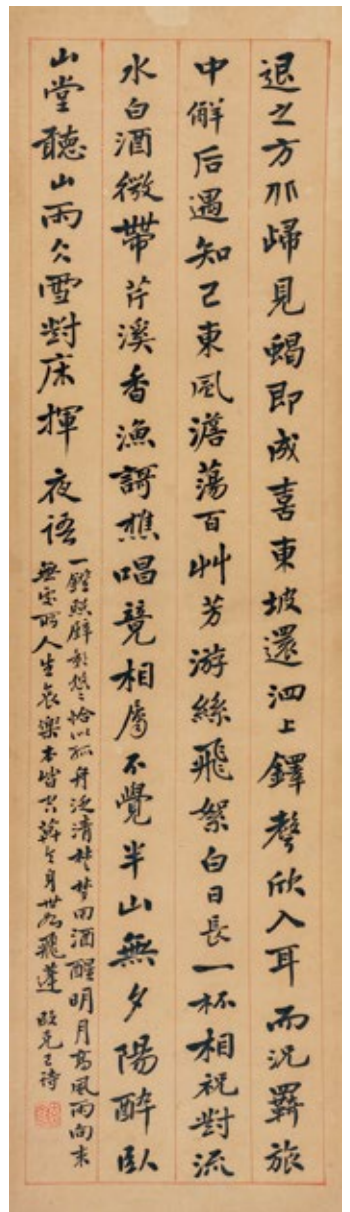 退之方北歸見蝎即成喜東坡還泗上鐸聲欣入耳而況羈旅
中觧后遇知己東風澹蕩百艸芳游絲飛絮白日長一杯相祝對流
水白酒微帶芹溪香漁謌樵唱竟相屬不覺半山無夕陽醉臥
山堂聽山雨仌雪對床揮夜語
一鐙照壁影恰似孤舟泛清楚夢回酒醒明月高風雨向來
無定所人生哀樂本皆空身世如飛蓬 克己詩